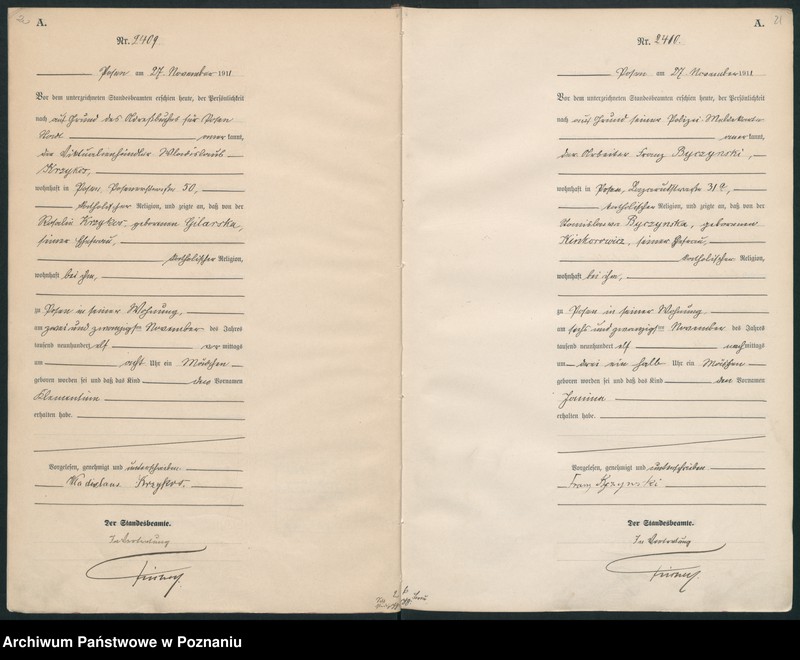 A.
Nr. 2409.
Posen am 27. November 1911
Vor dem unterzeichneten Standesbeamten erschien heute, der Persönlichkeit
nach auf Grund des Adreßbuches für Posen
Stadt anerkannt,
der Viktualienhändler Wladislaus
Krzykos,
wohnhaft in Posen, 50,
katholischer Religion, und zeigte an, daß von der
Rosalia Krzykos geborenen Gilarska,
seiner Ehefrau,
katholischer Religion,
wohnhaft bei ihm,
zu Posen in seiner Wohnung
am zwei und zwanzigsten November des Jahres
tausend neunhundert elf vormittags
um acht Uhr ein Mädchen
geboren worden sei und daß das Kind den Vornamen
Klementina
erhalten habe.
Vorgelesen, genehmigt und unterschrieben.
Wladislaus Krzykos.
Der Standesbeamte.
In Vertretung
A.
21
Nr. 2410.
Posen am 27. November 1911
Vor dem unterzeichneten Standesbeamten erschien heute, der Persönlichkeit
nach auf Grund seiner Polizei-Meldekarte
anerkannt,
der Arbeiter Franz Byczynski,
wohnhaft in Posen, 31a,
katholischer Religion, und zeigte an, daß von der
Stanislawa Byczynska, geborenen
Kinkorowicz, seiner Ehefrau,
katholischer Religion,
wohnhaft bei ihm,
zu Posen in seiner Wohnung
am sechs und zwanzigsten November des Jahres
tausend neunhundert elf nachmittags
um drei ein halb Uhr ein Mädchen
geboren worden sei und daß das Kind den Vornamen
Janina
erhalten habe.
Vorgelesen, genehmigt und unterschrieben
Franz Byzynski
Der Standesbeamte.
In Vertretung
Archiwum Państwowe w Poznaniu